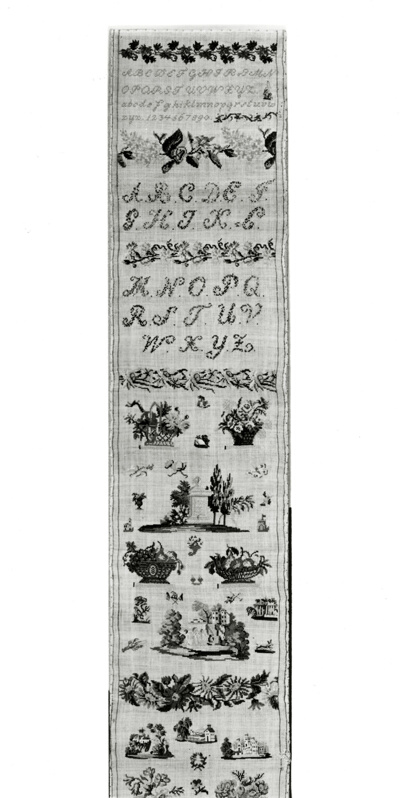 A B C D E F G H I K L M N
O P Q R S T U V W X Y Z
a b c d e f g h i k l m n o p q r s t u v w
x y z. 1 2 3 4 5 6 7 8 9 0
A. B. C. D. E. F.
G. H. I. K. L.
M. N. O. P. Q.
R. S. T. U. V.
W. X. Y. Z.